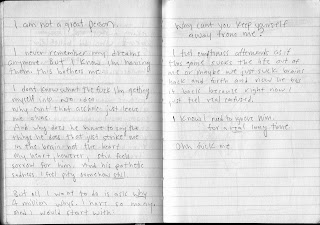 I am not a great person.
I never remember my dreams
anymore. But I know I'm having
them this bothers me.
I don't know what the fuck I'm getting
myself into
Why can't that asshole just leave
me alone
And why does he have to say the
things he does that just strike me
in the brain not the heart.
My heart, however, still feels
sorrow for him. And his pathetic
sadness I feel pity somehow still
But all I want to do is ask why
A million whys. I have so many
And I would start with
Why can't you keep yourself
away from me?
I feel emptiness afterwards as if
this game sucks the life out of
me or maybe we just suck brains
back and forth and now he has
it back because right now I
just feel real confused.
I know I need to ignore him
for a real long time
Ohh fuck me